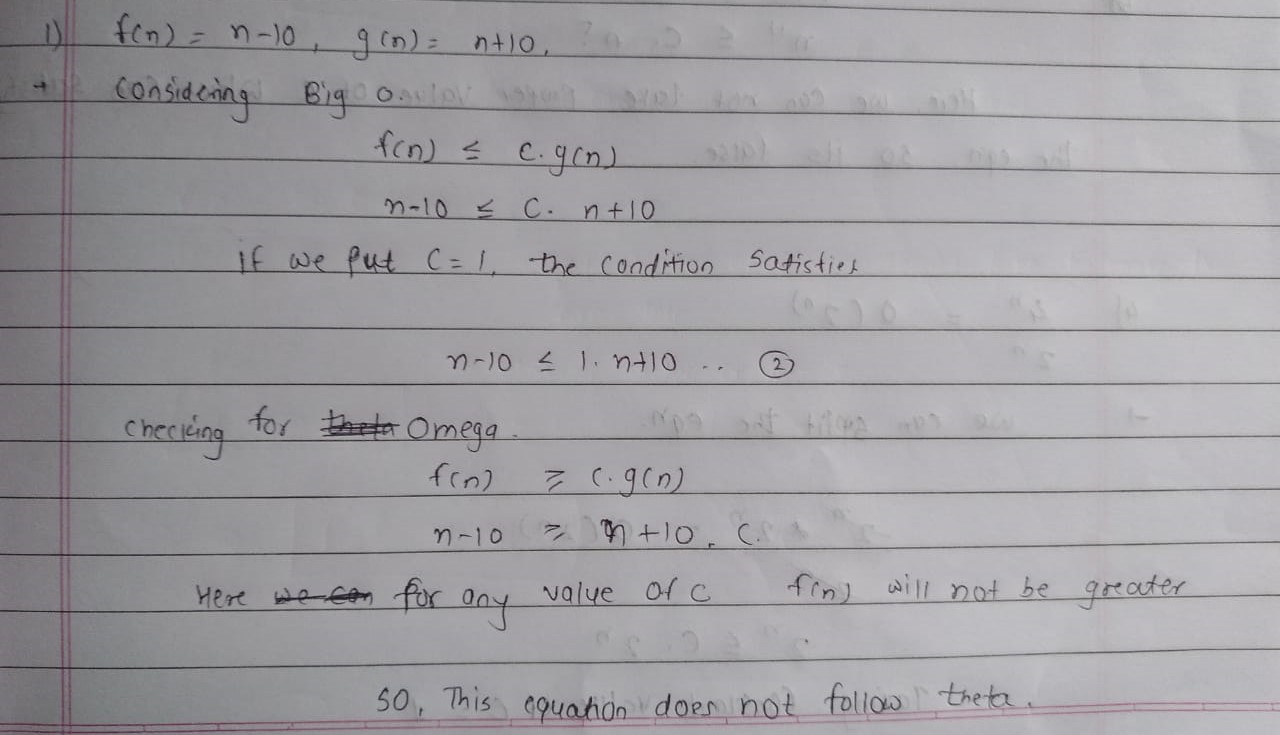 1) f(n) = n-10, g(n) = n+10.
→ Considering Big O.
f(n) ≤ c.g(n)
n-10 ≤ C. n+10
if we put C=1, the condition satisfies
n-10 ≤ 1. n+10 .. ②
checking for theta Omega.
f(n) ≥ c.g(n)
n-10 ≥ n+10. C.
Here we can for any value of c f(n) will not be greater
SO, This equation does not follow theta.